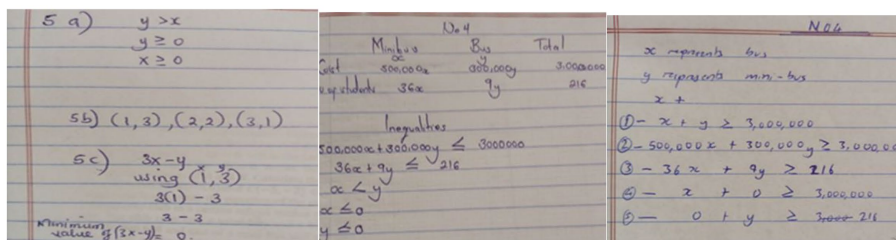 5 a) y > x
y ≥ 0
x ≥ 0
5b) (1, 3), (2, 2), (3, 1)
5c) 3x - y
x y
using (1, 3)
3(1) - 3
3 - 3
Minimum
value of (3x-y) = 0.
No 4
Minibus Bus Total
x y
Cost 500,000x 300,000y 3,000,000
36x 9y 216
Inequalities
500,000x + 300,000y ≤ 3000000
36x + 9y ≤ 216
x < y
x ≤ 0
y ≤ 0
NO 4
x represents bus
y represents mini-bus
x +
① - x + y ≥ 3,000,000
② - 500,000x + 300,000y ≥ 3,000,00
③ - 36x + 9y ≥ 216
④ - x + 0 ≥ 3,000,000
⑤ - 0 + y ≥ 216